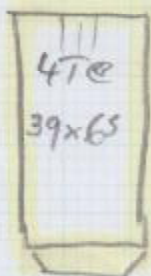 4Te
39x65